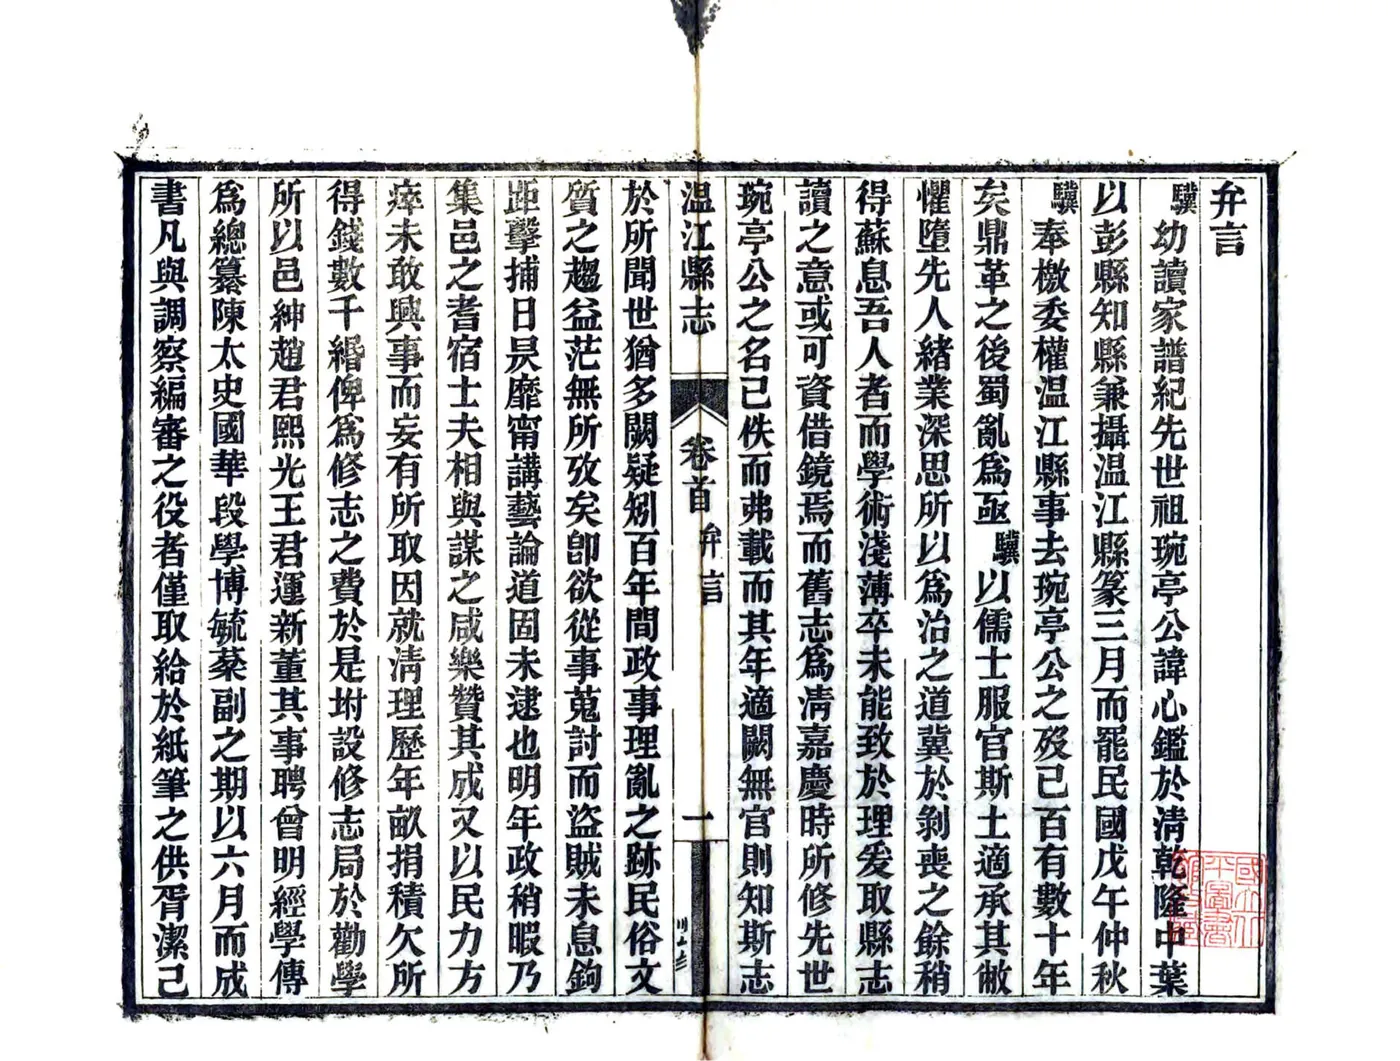 弁言
驥幼讀家譜紀先世祖琬亭公諱心鑑於淸乾隆中葉
以彭縣知縣兼攝温江縣篆三月而罷民國戊午仲秋
驥奉檄委權温江縣事去琬亭公之歿已百有數十年
矣鼎革之後蜀亂爲亟驥以儒士服官斯土適承其敝
懼墮先人緒業深思所以爲治之道冀於剝喪之餘稍
得蘇息吾人者而學術淺薄卒未能致於理爰取縣志
讀之意或可資借鏡焉而舊志爲淸嘉慶時所修先世
琬亭公之名已佚而弗載而其年適闕無官則知斯志
温江縣志
卷首
弁言
一
於所聞世猶多闕疑矧百年間政事理亂之跡民俗文
質之趨益茫無所攷矣卽欲從事蒐討而盜賊未息鉤
距擊捕日昃靡甯講藝論道固未逮也明年政稍暇乃
集邑之耆宿士夫相與謀之咸樂贊其成又以民力方
瘁未敢興事而妄有所取因就淸理歷年畝捐積欠所
得錢數千緡俾爲修志之費於是坿設修志局於勸學
所以邑紳趙君熙光王君運新董其事聘曾明經學傳
爲總纂陳太史國華段學博毓棻副之期以六月而成
書凡與調察編審之役者僅取給於紙筆之供胥潔己